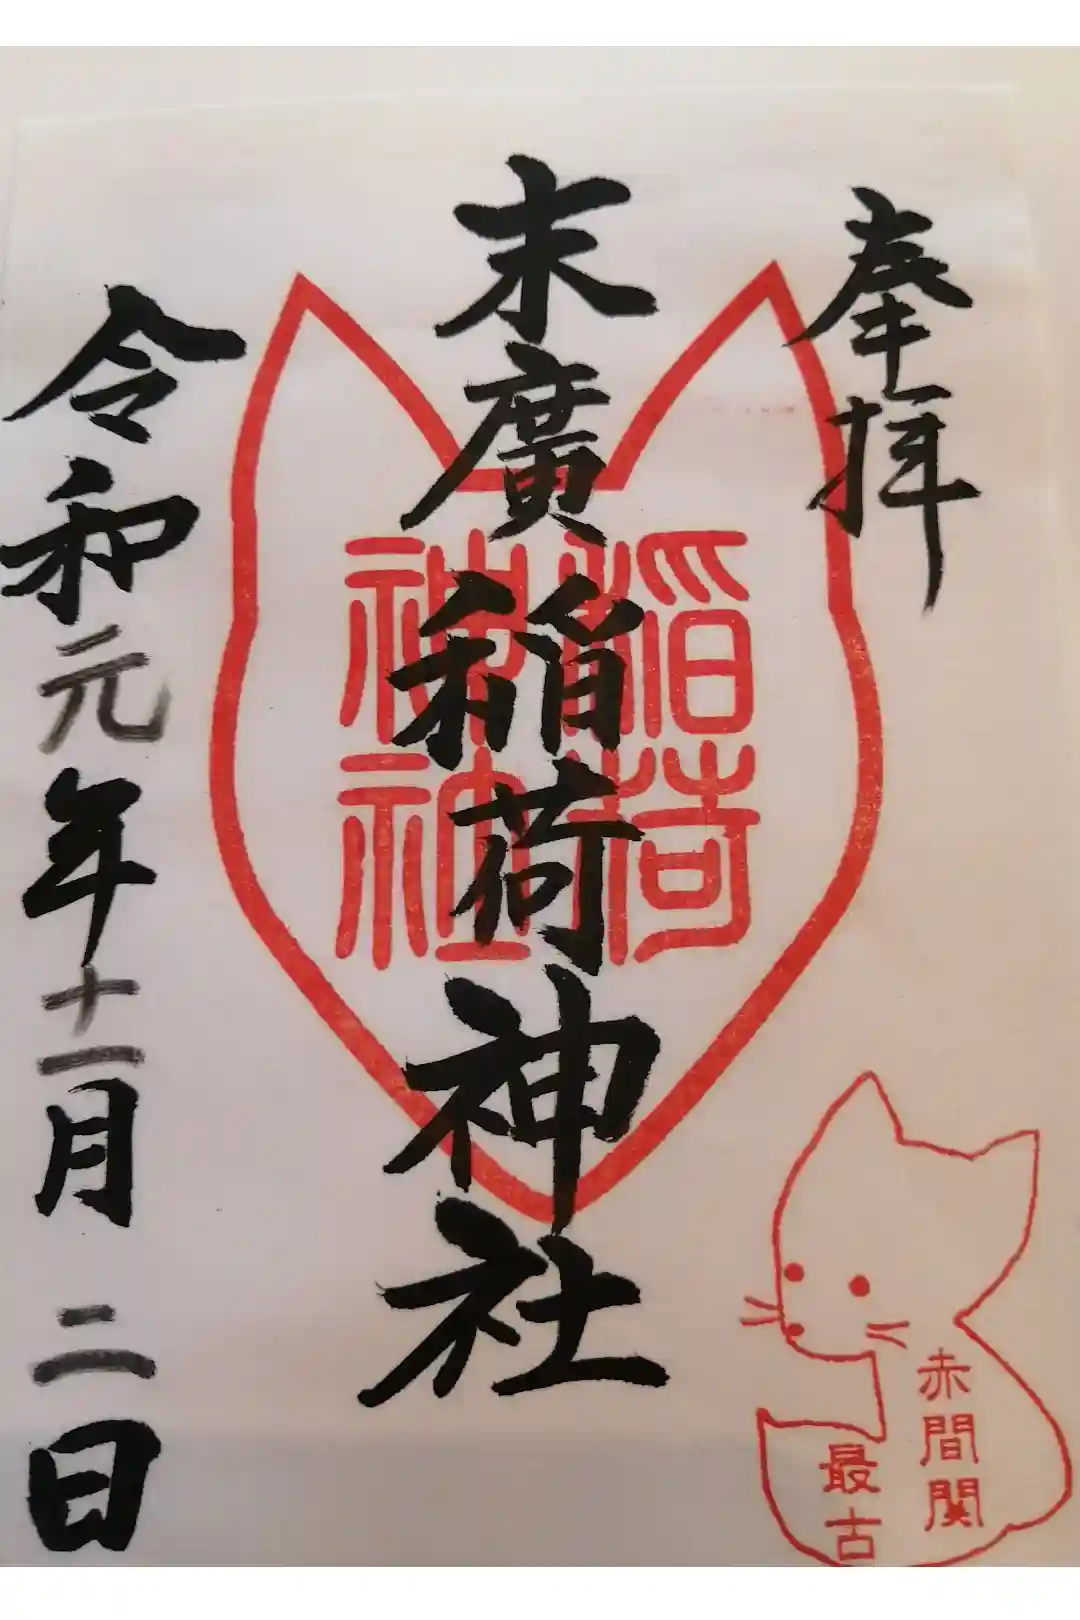 奉拝
末廣稲荷神社
稲荷
神社
令和元年十一月二日
赤間関
最古